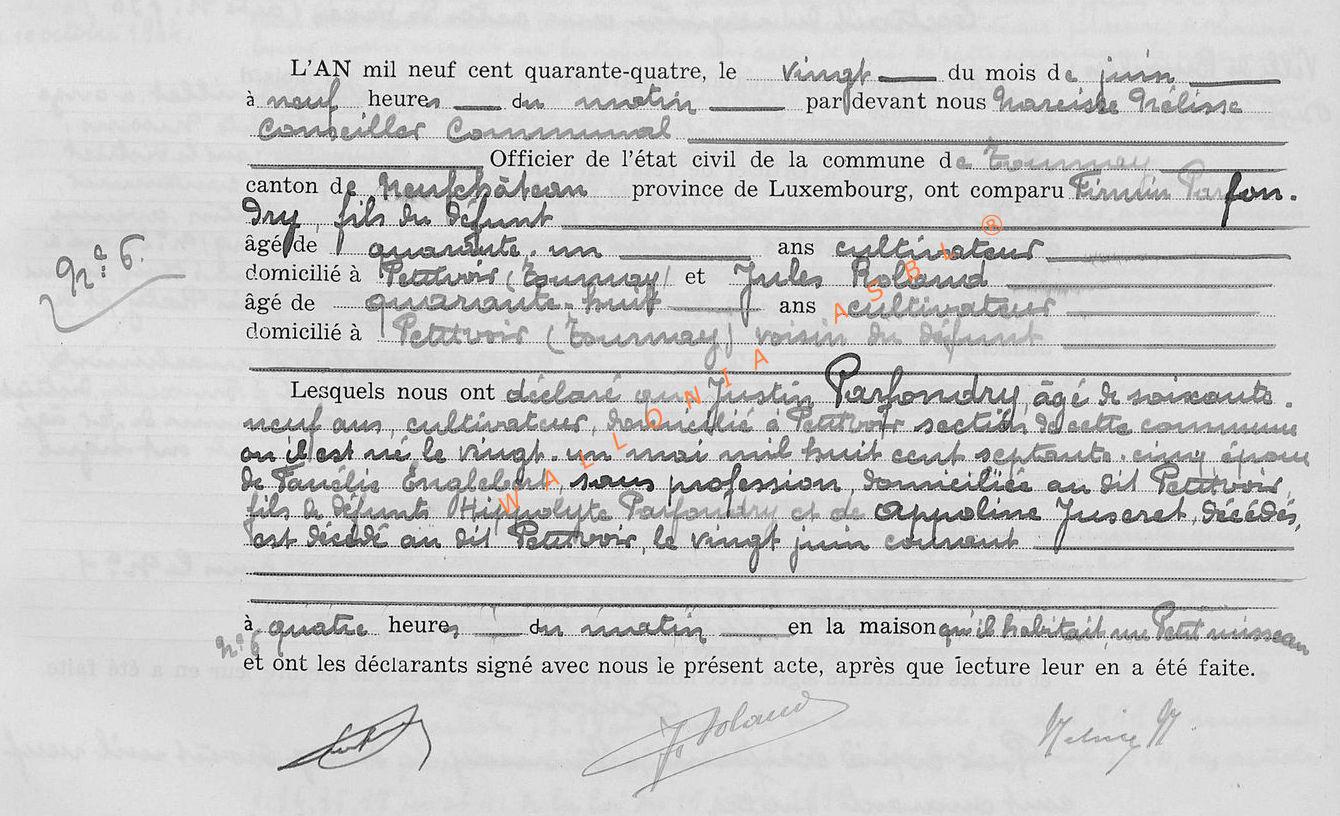 L'AN mil neuf cent quarante-quatre, le vingt du mois de juin
à neuf heures du matin par devant nous Narcisse Mélisse
Conseiller Communal
Officier de l'état civil de la commune de Tournay
canton de Neufchâteau province de Luxembourg, ont comparu Firmin Parfon-
dry, fils du défunt
âgé de quarante-un ans cultivateur
domicilié à Petitvoir (Tournay) et Jules Roland
âgé de quarante-huit ans cultivateur
domicilié à Petitvoir (Tournay) voisin du défunt
Nº 6.
Lesquels nous ont déclaré que Justin Parfondry, âgé de soixante-
neuf ans, cultivateur, domicilié à Petitvoir section de cette commune
où il est né le vingt-un mai mil huit cent septante-cinq époux
de Englebert, sans profession, domiciliée au dit Petitvoir,
fils de défunts Hippolyte Parfondry et de Appoline Juseret, décédés,
est décédé au dit Petitvoir, le vingt juin courant
à quatre heures du matin en la maison qu'il habitait, rue Petit ruisseau
nº 6
et ont les déclarants signé avec nous le présent acte, après que lecture leur en a été faite.
J. Roland
WALLONIA ASBL ®